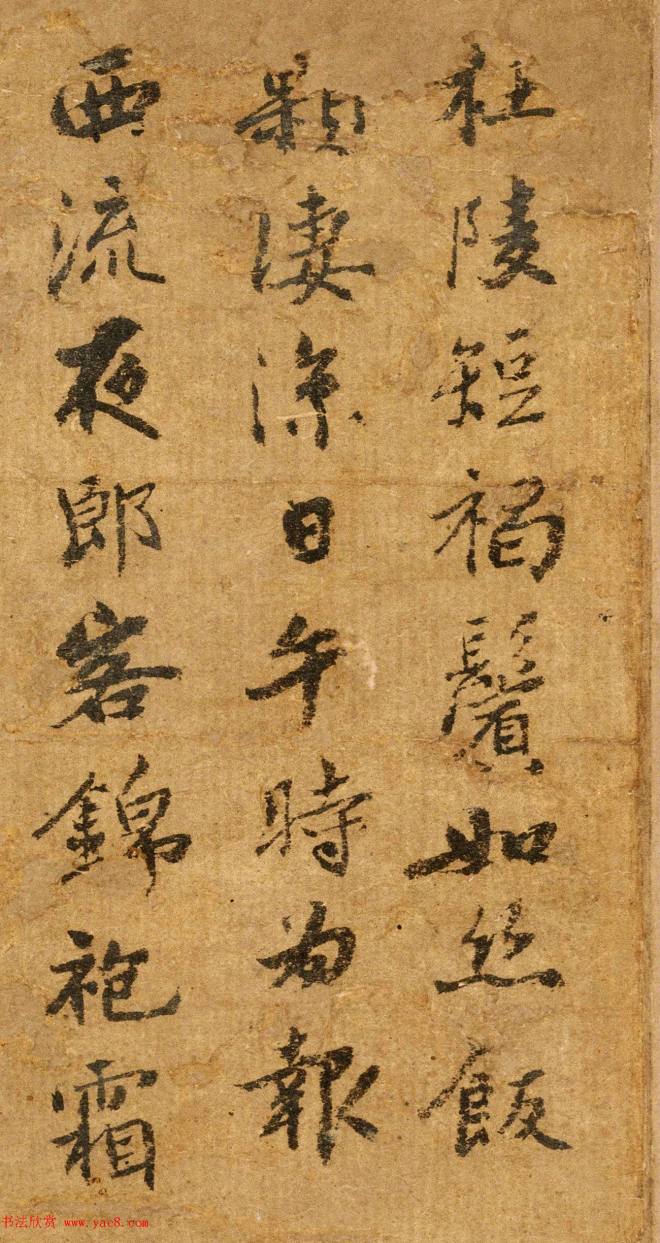 杜陵短褐鬢如丝飯
顆凄涼日午時为報
西流夜郎客錦袍霜
书法欣赏 www.yac8.com